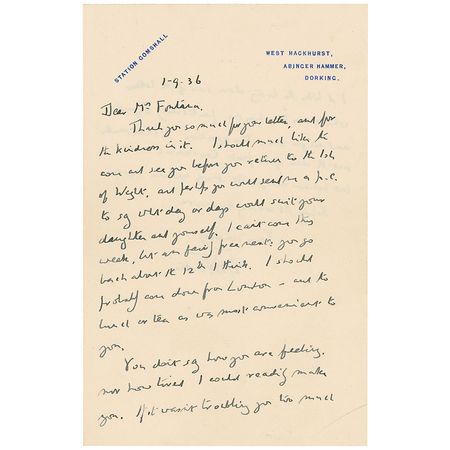 STATION GOMSHALL
WEST HACKHURST,
ABINGER HAMMER,
DORKING.
1-9-36
Dear Mr Fontana.
Thank you so much for your letter, and for
the kindness in it. I should much like to
come and see you before you return to the Isle
of Wight, and perhaps you would send me a p.c.
to say what day or days would suit your
daughter and yourself. I can't come this
week, but am fairly free next: you go
back about the 12th I think. I should
probably come down from London – and to
lunch or tea as was most convenient to
you.
You don't say how you are feeling.
nor how tired I could reading make
you. If it wasn't troubling you too much